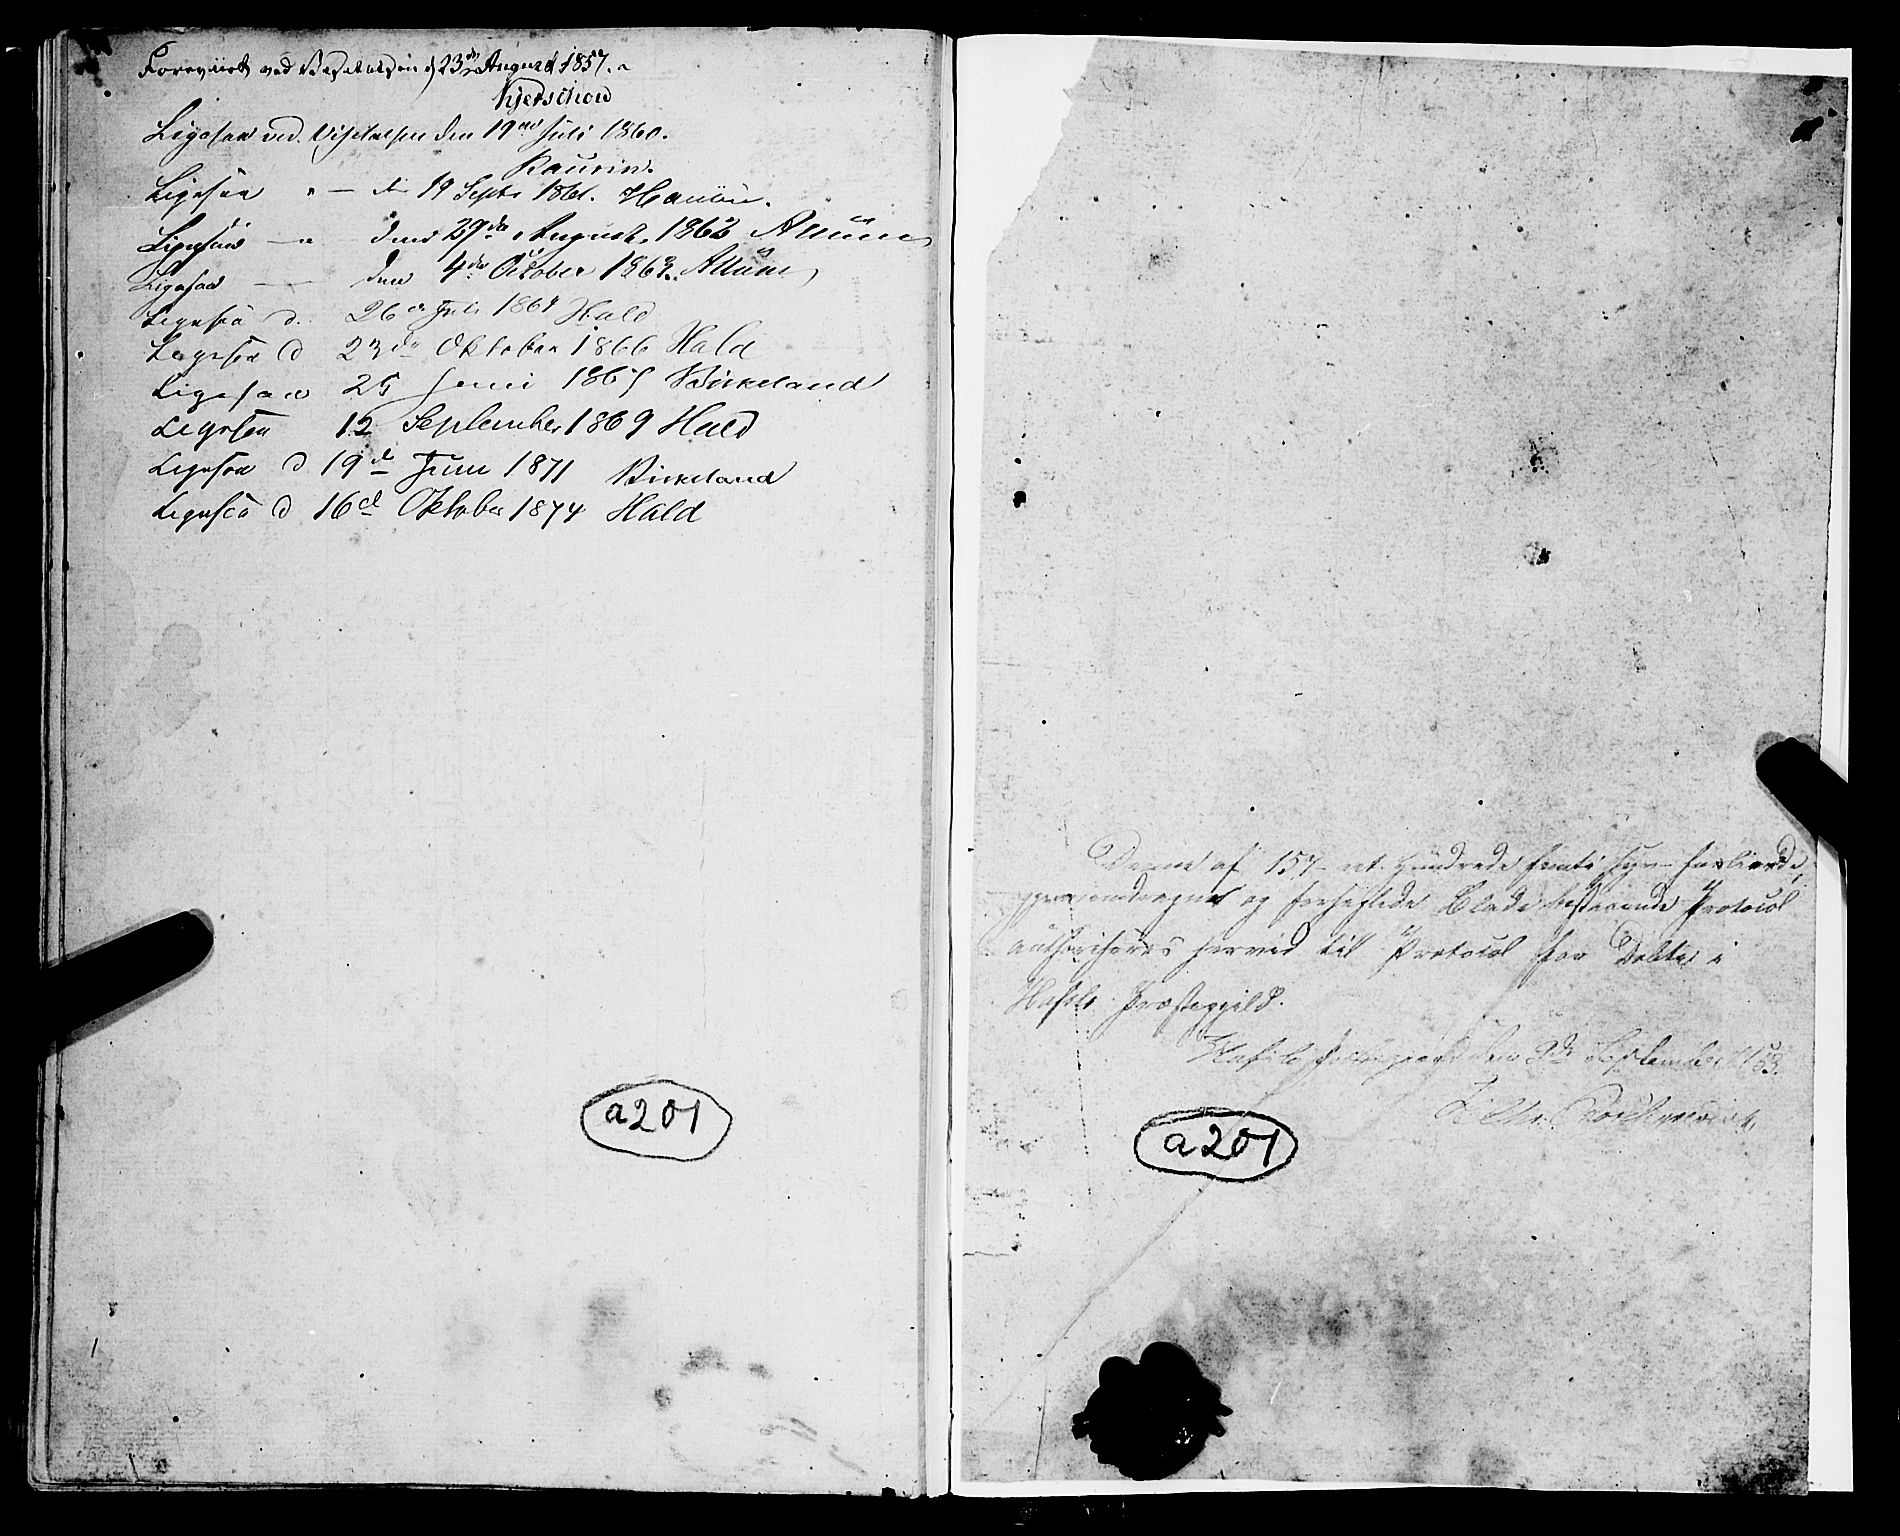 Foreviist ved Visitatsen d 23de August 1857.
Kjerschow
Ligesaa ved Visitatsen den 19de Juli 1860.
Kaurin.
Ligesaa " — d. 19 Septr 1861.
Ligesaa — " den 29de August 1862
Ligesaa — den 4de October 1863.
Ligesaa d. 26de Juli 1864 Hald
Ligesaa d 23de Oktober 1866 Hald
Ligesaa 25 Juni 1867 Birkeland
Ligesaa 12 September 1869 Hald
Ligesaa d 19de Juni 1871 Birkeland
Ligesaa d 16de Oktober 1874 Hald
a201
Denne af 157 – et Hundrede femti syv – folierede,
gjennemdragne og forseglede Blade bestaaende Protocol
authoriseres herved til Protocol for Døbte i
Hafslo Præstegjeld.
Hafslo den 9de September 1853.
a201